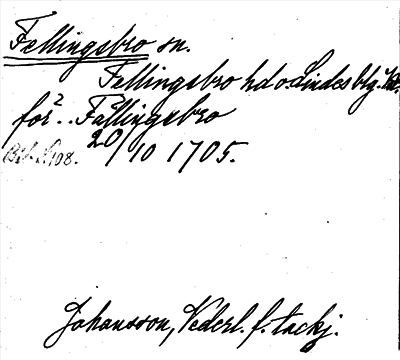 Fellingsbro sn.
Fellingsbro hd o. Lindes blg.
för². Fällingsbro
20/10 1705.
Johansson, Vederl. f. tackj.